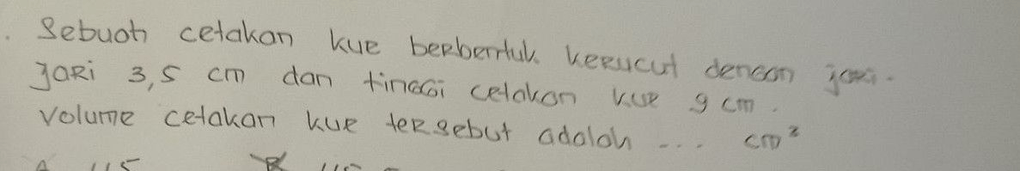 Sebuah cetakan kue berbentuk kerucut dengan jari-
jari 3,5 cm dan tinggi cetakan kue 9 cm.
Volume cetakan kue tersebut adalah ... cm³
A 115 B